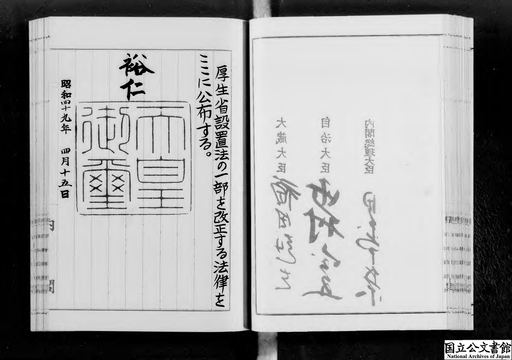 内閣總理大臣
自治大臣
大蔵大臣
厚生省設置法の一部を改正する法律を
ここに公布する。
裕仁
天皇
御璽
昭和四十九年 四月十五日
内 閣
国立公文書館
National Archives of Japan